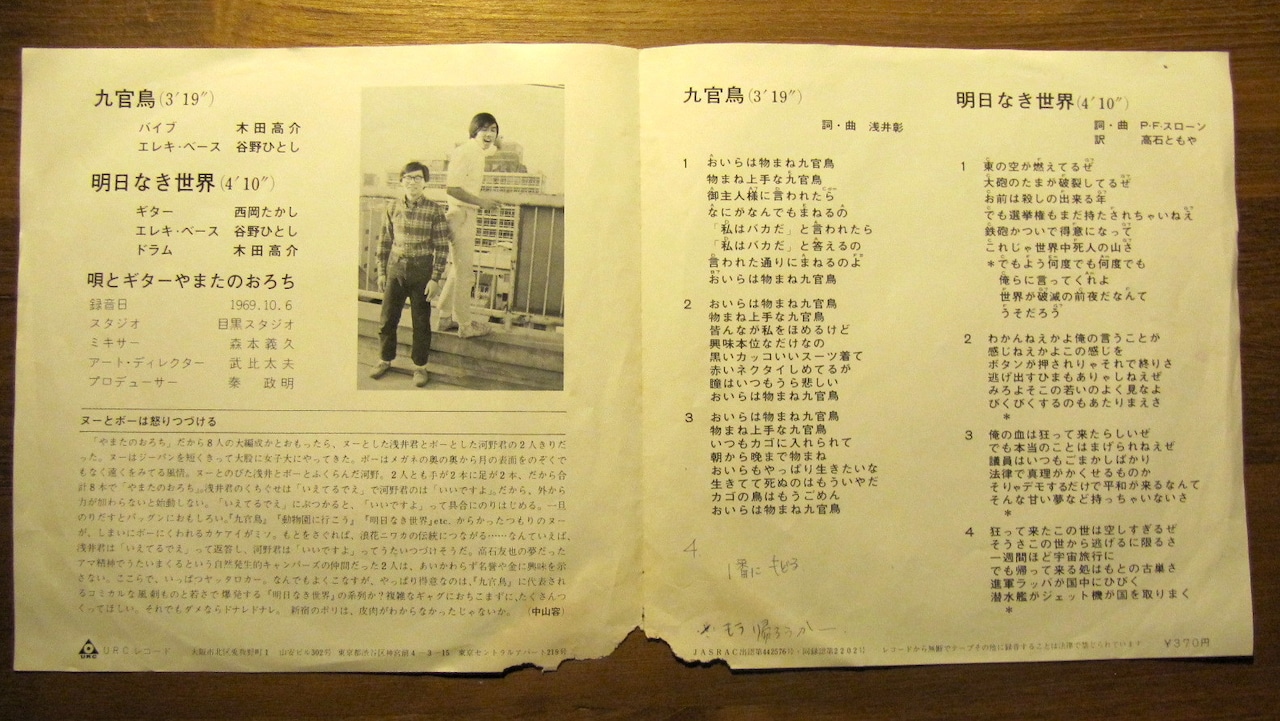 九官鳥(3′19″)
バイブ 木田高介
エレキ・ベース 谷野ひとし
明日なき世界(4′10″)
ギター 西岡たかし
エレキ・ベース 谷野ひとし
ドラム 木田高介
唄とギターやまたのおろち
録音日 1969.10.6
スタジオ 目黒スタジオ
ミキサー 森本義久
アート・ディレクター 武比太夫
プロデューサー 秦 政明
ヌーとボーは怒りつづける
「やまたのおろち」だから8人の大編成かとおもったら、ヌーとした浅井君とボーとした河野君の2人きりだ
った。ヌーはジーパンを短くきって大股に女子大にやってきた。ボーはメガネの奥の奥から月の表面をのぞくで
もなく遠くをみてる風情。ヌーとのびた浅井とボーとふくらんだ河野。2人とも手が2本に足が2本、だから合
計8本で「やまたのおろち」。浅井君のくちぐせは「いえてるでえ」で河野君のは「いいですよ」。だから、外から
力が加わらないと始動しない。「いえてるでえ」にぶつかると、「いいですよ」って具合にのりはじめる。一旦
のりだすとバツグンにおもしろい。『九官鳥』『動物園に行こう』『明日なき世界』etc.からかったつもりのヌー
が、しまいにボーにくわれるカケアイがミソ。もとをさぐれば、浪花ニワカの伝統につながる……なんていえば、
浅井君は「いえてるでえ」って返答し、河野君は「いいですよ」ってうたいつづけそうだ。高石友也の夢だった
アマ精神でうたいまくるという自然発生的キャンパーズの仲間だった2人は、あいかわらず名誉や金に興味を示
さない。ここらで、いっぱつヤッタロカー。なんでもよくこなすが、やっぱり得意なのは、『九官鳥』に代表され
るコミカルな風刺ものと若さで爆発する『明日なき世界』の系列か?複雑なギャグにおちこまずに、たくさんつ
くってほしい。それでもダメならドナレドナレ。 新宿のポリは、皮肉がわからなかったじゃないか。 (中山容)
URC URCレコード 大阪市北区兎我野町1 山安ビル302号 東京都渋谷区神宮前4-3-15 東京セントラルアパート219号
九官鳥(3′19″)
詞・曲 浅井彰
1 おいらは物まね九官鳥
物まね上手な九官鳥
御主人様に言われたら
なにかなんでもまねるの
「私はバカだ」と言われたら
「私はバカだ」と答えるの
言われた通りにまねるのよ
おいらは物まね九官鳥
2 おいらは物まね九官鳥
物まね上手な九官鳥
皆んなが私をほめるけど
興味本位なだけなの
黒いカッコいいスーツ着て
赤いネクタイしめてるが
瞳はいつもうら悲しい
おいらは物まね九官鳥
3 おいらは物まね九官鳥
物まね上手な九官鳥
いつもカゴに入れられて
朝から晩まで物まね
おいらもやっぱり生きたいな
生きてて死ぬのはもういやだ
カゴの鳥はもうごめん
おいらは物まね九官鳥
4
1番に もどる
もう 帰ろうかー
JASRAC(出認第442576号・同録認第22021)
明日なき世界(4′10″)
詞・曲 P・F・スローン
訳 高石ともや
1 東の空が燃えてるぜ
大砲のたまが破裂してるぜ
お前は殺しの出来る年
でも選挙権もまだ持たされちゃいねえ
鉄砲かついで得意になって
これじゃ世界中死人の山さ
*でもよう何度でも何度でも
俺らに言ってくれよ
世界が破滅の前夜だなんて
うそだろう
2 わかんねえかよ俺の言うことが
感じねえかよこの感じを
ボタンが押されりゃそれで終りさ
逃げ出すひまもありゃしねえぜ
みろよそこの若いのよく見なよ
びくびくするのもあたりまえさ
*
3 俺の血は狂って来たらしいぜ
でも本当のことはまげられねえぜ
議員はいつもごまかしばかり
法律で真理がかくせるものか
そりゃデモするだけで平和が来るなんて
そんな甘い夢など持っちゃいないさ
*
4 狂って来たこの世は空しすぎるぜ
そうさこの世から逃げるに限るさ
一週間ほど宇宙旅行に
でも帰って来る処はもとの古巣さ
進軍ラッパが国中にひびく
潜水艦がジェット機が国を取りまく
*
レコードから無断でテープその他に録音することは法律で禁じられています。 ¥370円